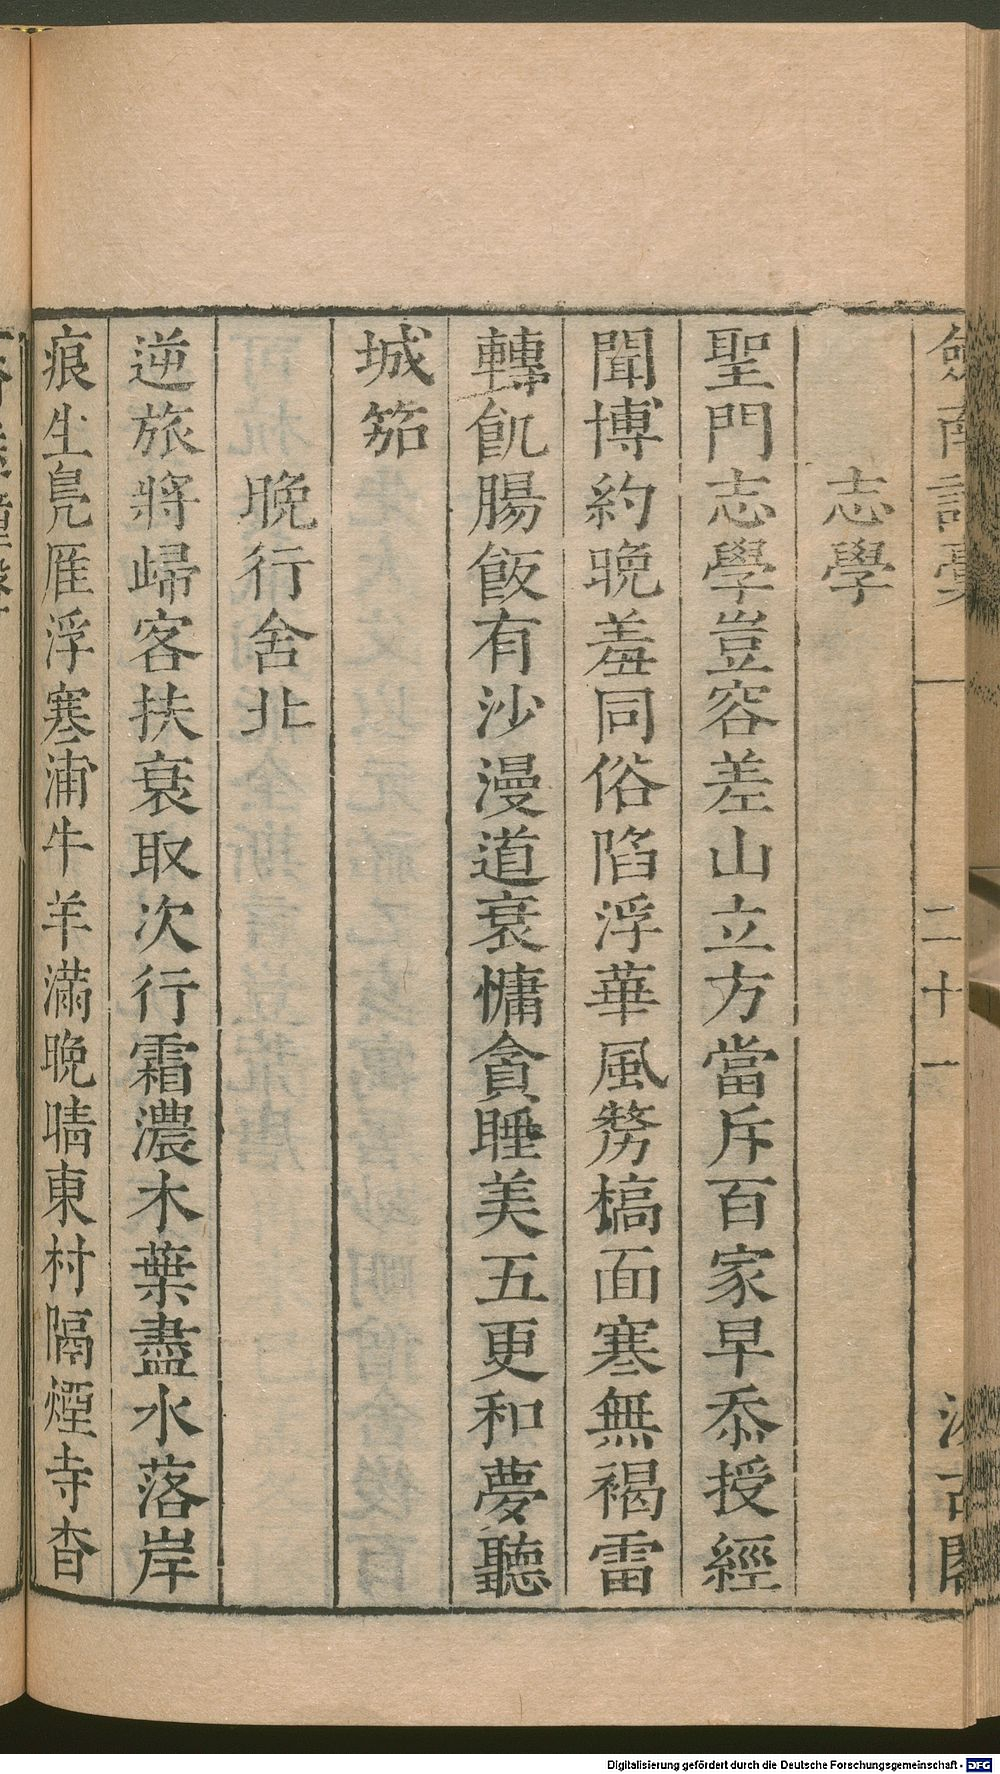 劒南詩稾 二十一 汲古閣
志學
聖門志學豈容差山立方當斥百家早忝授經
聞博約晚羞同俗陷浮華風簩槁面寒無褐雷
轉飢腸飯有沙漫道衰慵貪睡美五更和夢聽
城笳
晚行舍北
逆旅將歸客扶衰取次行霜濃木葉盡水落岸
痕生鳧雁浮寒浦牛羊滿晚晴東村隔煙寺杳
Digitalisierung gefördert durch die Deutsche Forschungsgemeinschaft - DFG